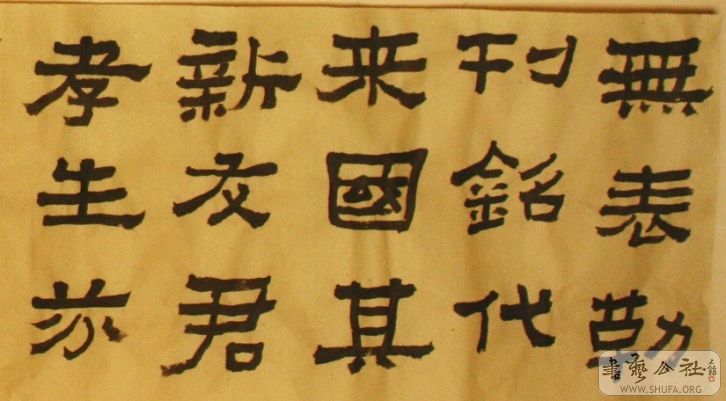 無表勒
刊銘代
来國其
新友君
孝生
書藝公社
WWW.SHUFA.ORG